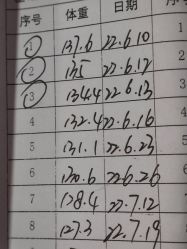 序号 体重 日期
1 137.6 22.6.10
2 135 22.6.12
3 134.4 22.6.13
4 132.4 22.6.16
5 131.1 22.6.23
6 130.6 22.6.26
7 128.4 22.7.12
8 127.3 22.7.19